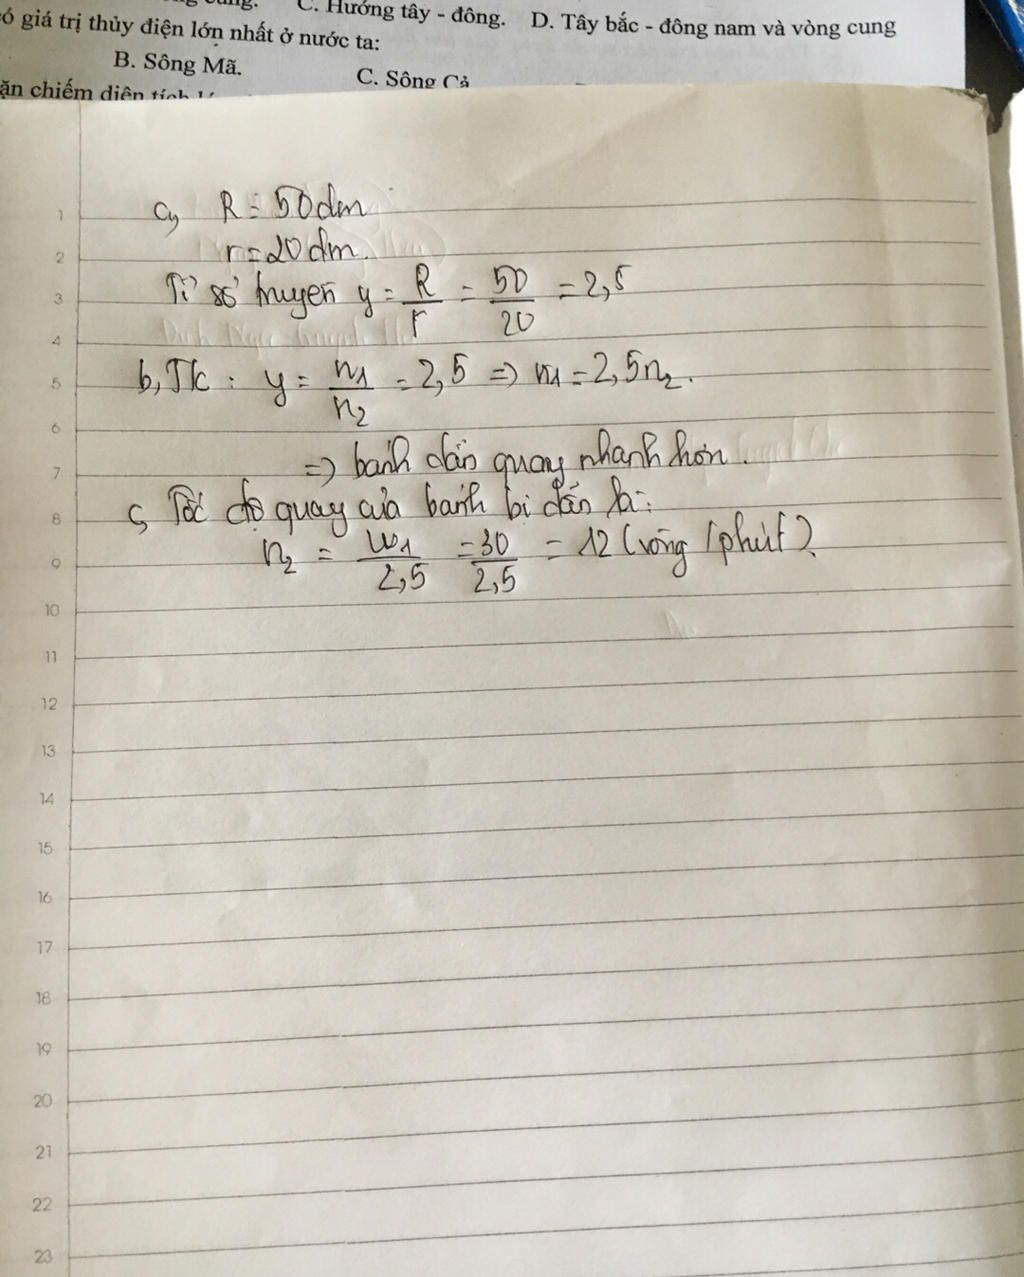 C. Hướng tây - đông. D. Tây bắc - đông nam và vòng cung
ó giá trị thủy điện lớn nhất ở nước ta:
B. Sông Mã. C. Sông Cả
ặn chiếm diện tích
a, R = 50dm
r = 20 dm.
Tỉ số truyền y = R/r = 50/20 = 2,5
b, Tk : y = n1/n2 = 2,5 => n1 = 2,5n2.
=> bánh dẫn quay nhanh hơn.
c, Tốc độ quay của bánh bị dẫn là:
n2 = n1/2,5 = 30/2,5 = 12 (vòng / phút)
1
2
3
4
5
6
7
8
9
10
11
12
13
14
15
16
17
18
19
20
21
22
23